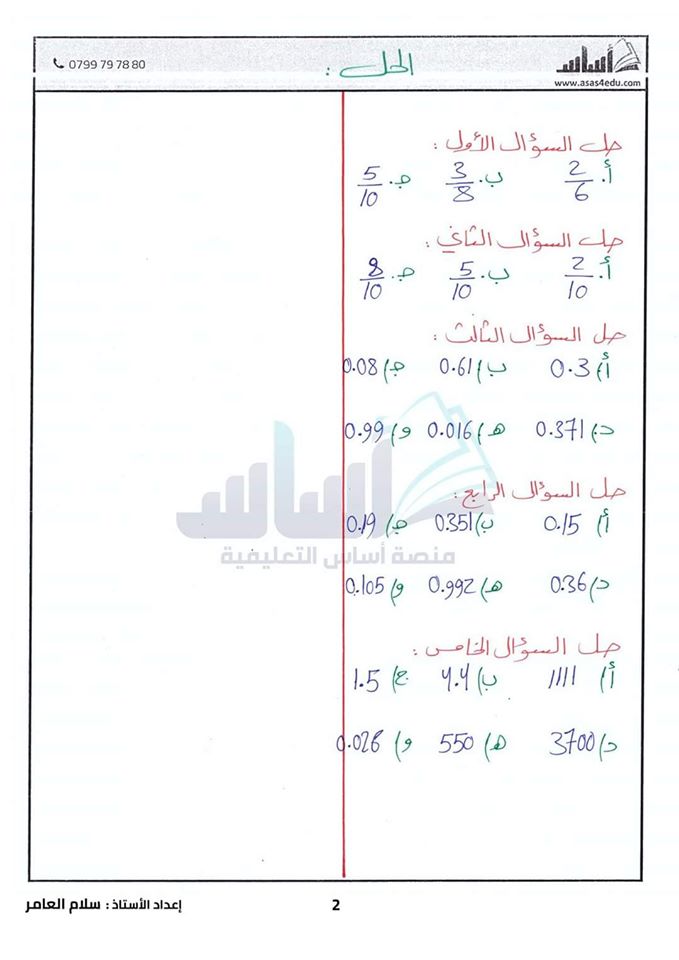 أساس
www.asas4edu.com
الحل :
0799 79 78 80
حل السؤال الأول :
أ. 2/6 ب. 3/8 ج. 5/10
حل السؤال الثاني :
أ. 2/10 ب. 5/10 ج. 8/10
حل السؤال الثالث :
أ) 0.3 ب) 0.61 ج) 0.08
د) 0.371 هـ) 0.016 و) 0.99
أساس
منصة أساس التعليمية
حل السؤال الرابع :
أ) 0.15 ب) 0.351 ج) 0.19
د) 0.36 هـ) 0.992 و) 0.105
حل السؤال الخامس :
أ) 1111 ب) 4.4 ج) 1.5
د) 3700 هـ) 550 و) 0.026
إعداد الأستاذ : سلام العامر
2